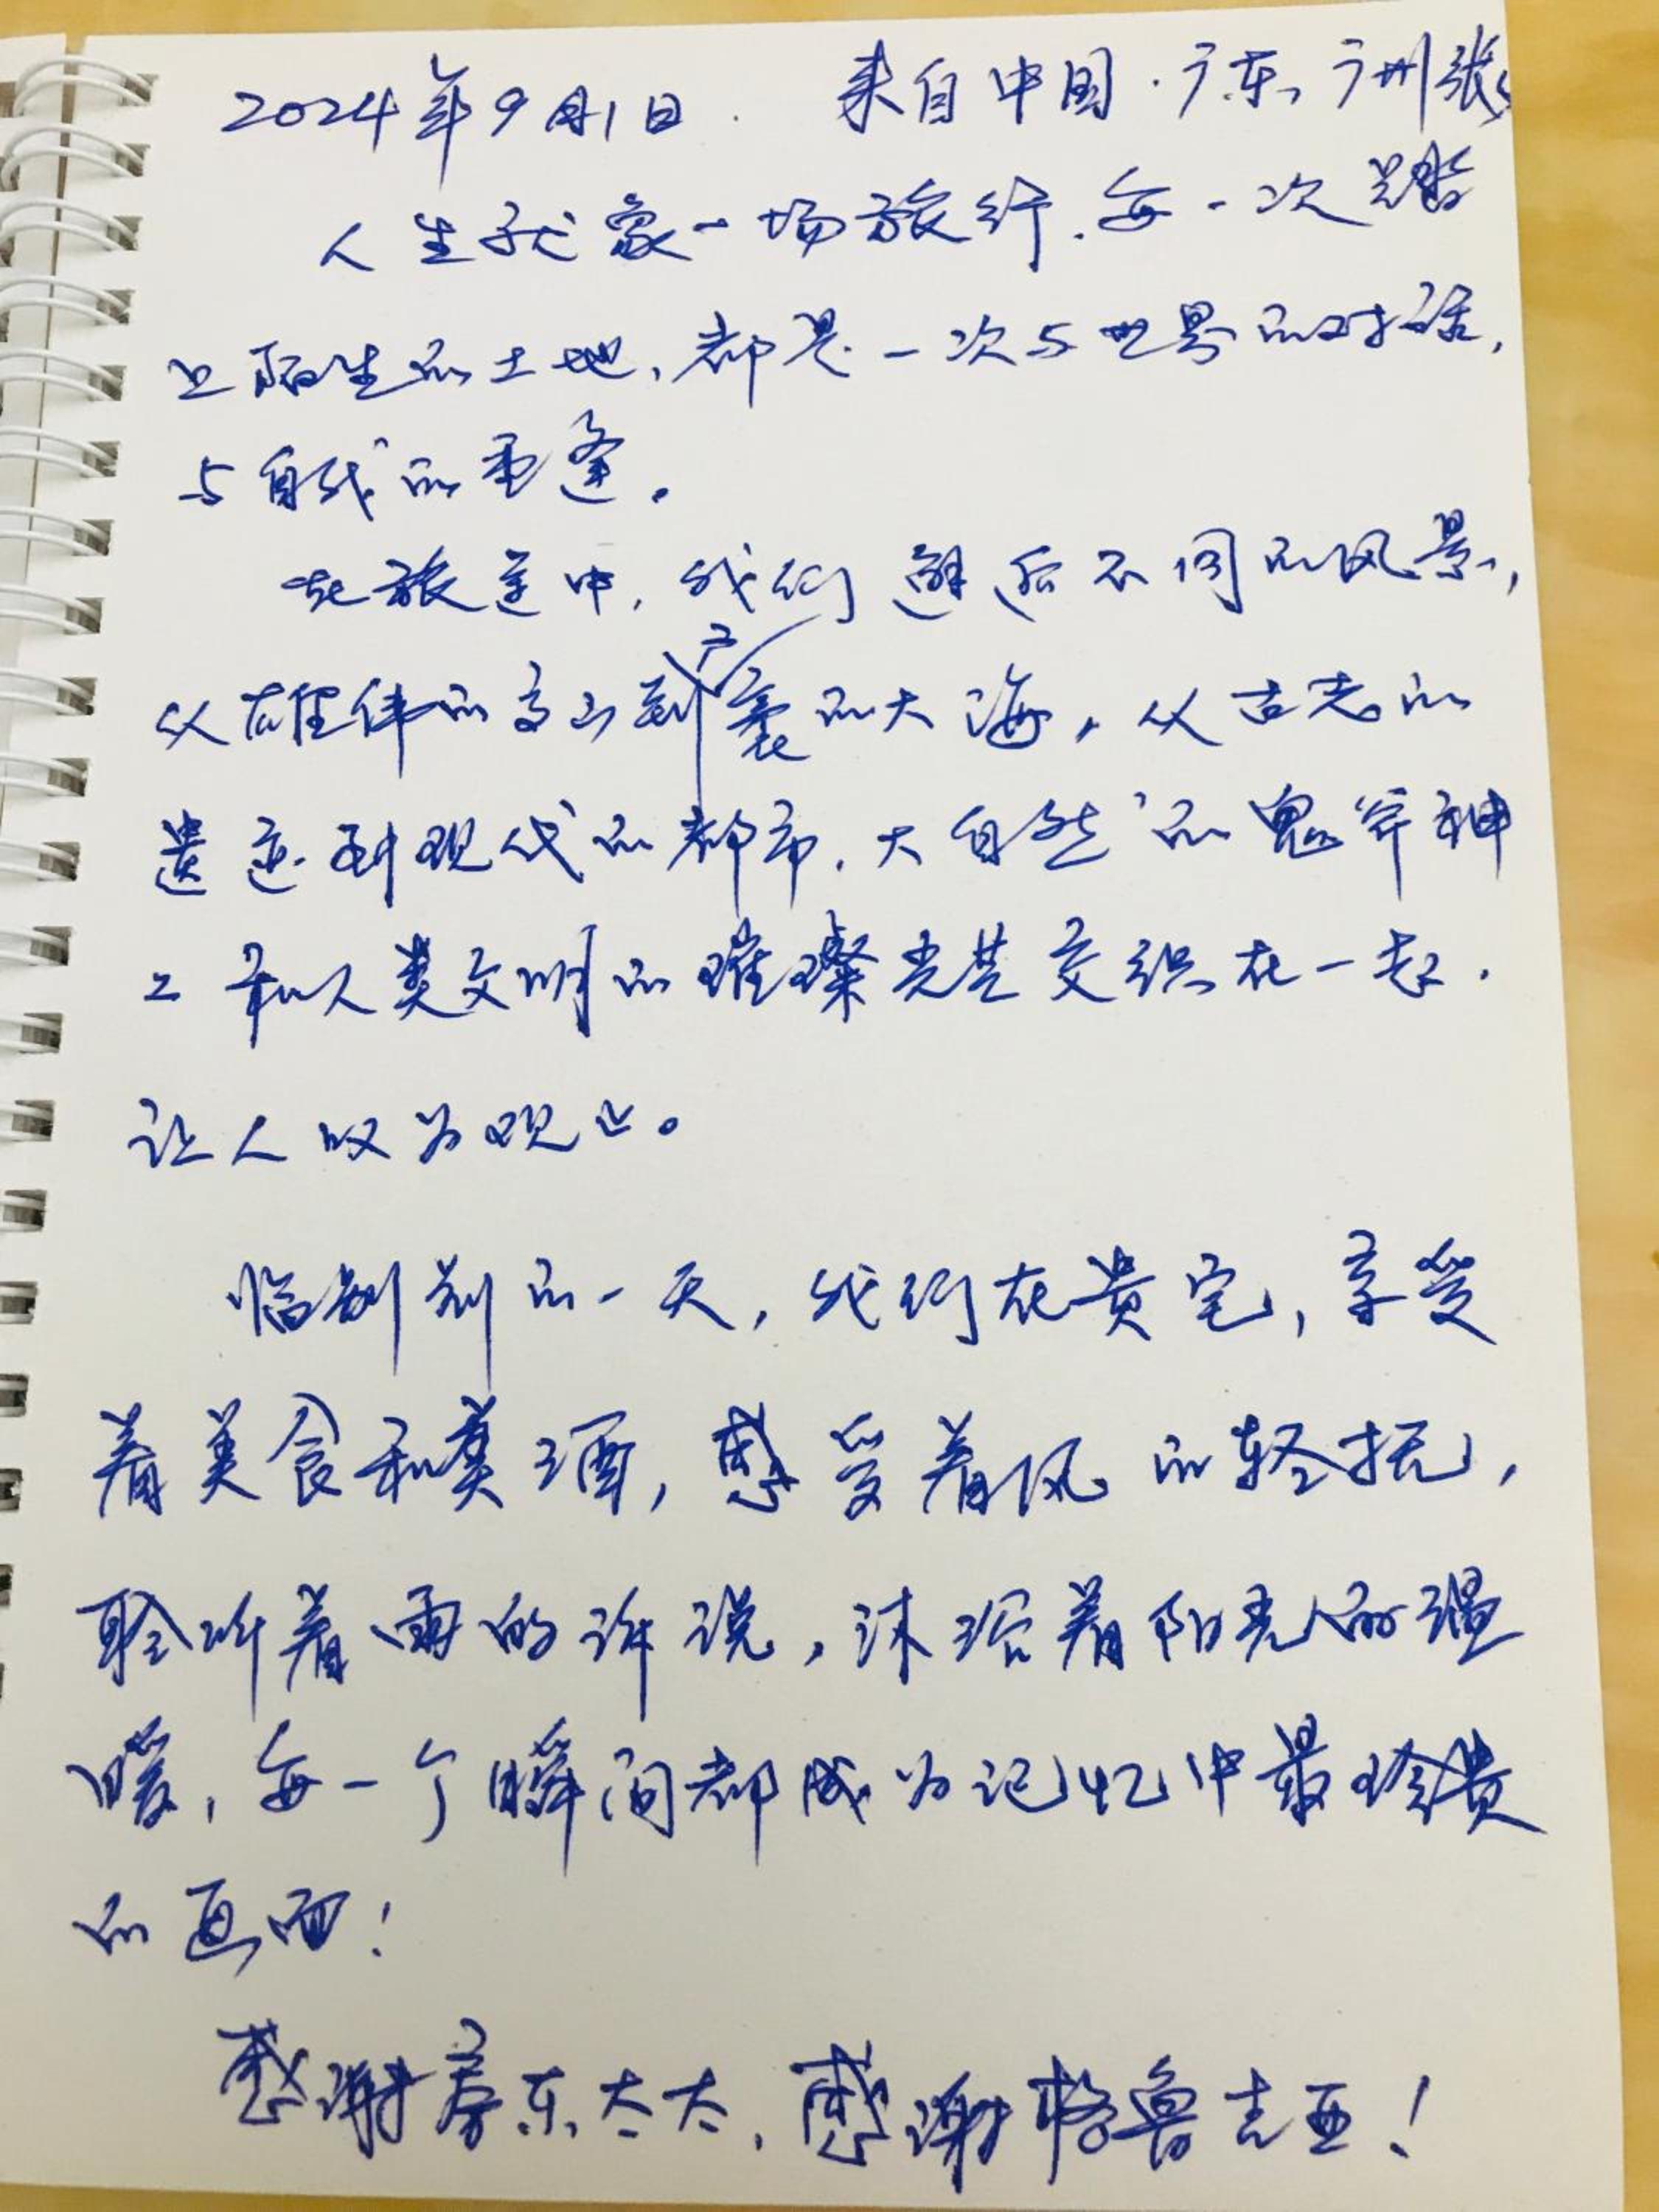 2024年9月1日. 来自中国·广东、广州张
人生就象一场旅行.每一次踏
上陌生的土地,都是一次与世界的对话,
与自我的重逢。
在旅途中,我们邂逅不同的风景,
从雄伟的高山到广袤的大海,从古老的
遗迹到现代的都市.大自然的鬼斧神
工和人类文明的璀璨光芒交织在一起.
让人叹为观止。
临别的一天,我们在贵宅,享受
着美食和美酒,感受着风的轻抚,
聆听着雨的诉说,沐浴着阳光的温
暖,每一个瞬间都成为记忆中最珍贵
的画面!
感谢房东太太,感谢格鲁吉亚!